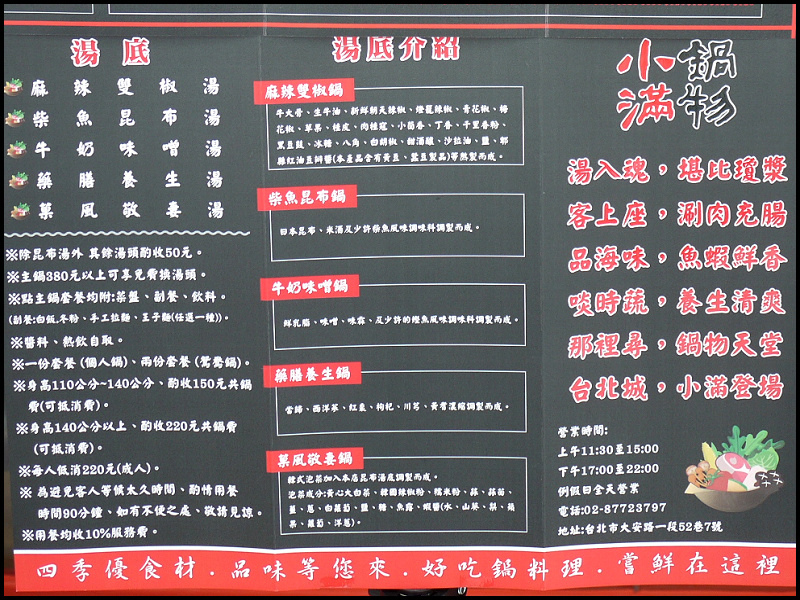 湯底
麻辣雙椒湯
柴魚昆布湯
牛奶味噌湯
藥膳養生湯
菓風敬妻湯
※除昆布湯外 其餘湯頭酌收50元。
※主鍋380元以上可享免費換湯頭。
※點主鍋套餐均附:菜盤、副餐、飲料。
(副餐:白飯.冬粉、手工拉麵、王子麵(任選一種))。
※醬料、熱飲自取。
※一份套餐(個人鍋)、兩份套餐(鴛鴦鍋)。
※身高110公分~140公分、酌收150元共鍋
費(可抵消費)。
※身高140公分以上、酌收220元共鍋費
(可抵消費)。
※每人低消220元(成人)。
※ 為避免客人等候太久時間、酌情用餐
時間90分鐘、如有不便之處、敬請見諒。
※用餐均收10%服務費。
湯底介紹
麻辣雙椒鍋
牛大骨、生牛油、新鮮朝天辣椒、燈籠辣椒、青花椒、梅
花椒、草果、桂皮、肉桂寇、小茴香、丁香、千里香粉、
黑豆豉、冰糖、八角、白胡椒、甜酒釀、沙拉油、鹽、郫
縣紅油豆瓣醬(本產品含有黃豆、蠶豆製品)等熬製而成。
柴魚昆布鍋
日本昆布、米酒及少許柴魚風味調味料調製而成。
牛奶味噌鍋
鮮乳酪、味噌、味霖、及少許的鰹魚風味調味料調製而成。
藥膳養生鍋
當歸、西洋蔘、紅棗、枸杞、川芎、黃耆濃縮調製而成。
菓風敬妻鍋
韓式泡菜加入本店昆布湯底調製而成。
泡菜成分:黃心大白菜、韓國辣椒粉、糯米粉、蒜、蒜苗、
薑、蔥、白蘿蔔、鹽、糖、魚露、蝦醬(水、山葵、梨、蘋
果、蘿蔔、洋蔥)。
小滿鍋物
湯入魂，堪比瓊漿
客上座，涮肉充腸
品海味，魚蝦鮮香
啖時蔬，養生清爽
那裡尋，鍋物天堂
台北城，小滿登場
營業時間:
上午11:30至15:00
下午17:00至22:00
例假日全天營業
電話:02-87723797
地址:台北市大安路一段52巷7號
四季優食材.品味等您來.好吃鍋料理.嘗鮮在這裡